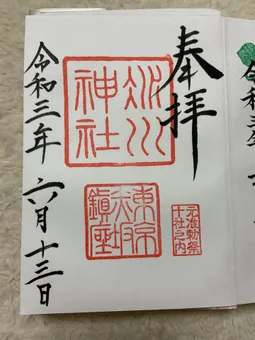 奉拝
氷川
神社
東京
赤坂
鎮座
元准勅祭
十社之内
令和三年六月十三日
令和三年